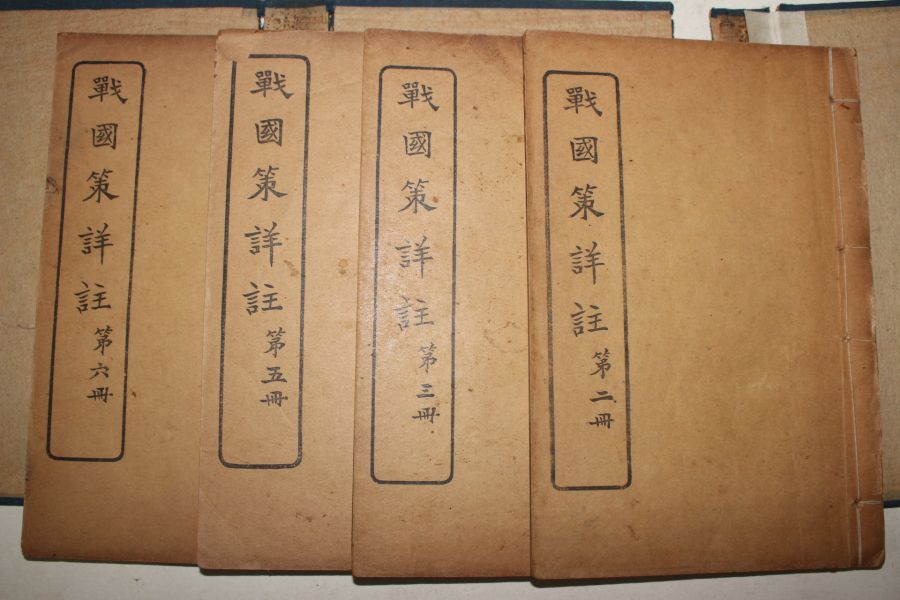 戰國策詳註 第二冊
戰國策詳註 第三冊
戰國策詳註 第五冊
戰國策詳註 第六冊